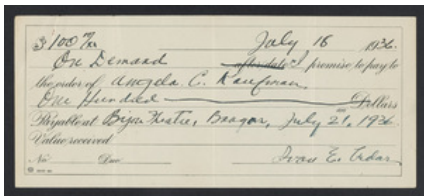 $100 00/xx July 16 1936
On Demand after date I promise to pay to
the order of Angela C. Kaufman
One Hundred Dollars
Payable at Bijou Theatre, Bangor, July 21, 1936.
Value received
No Due Ivan E.